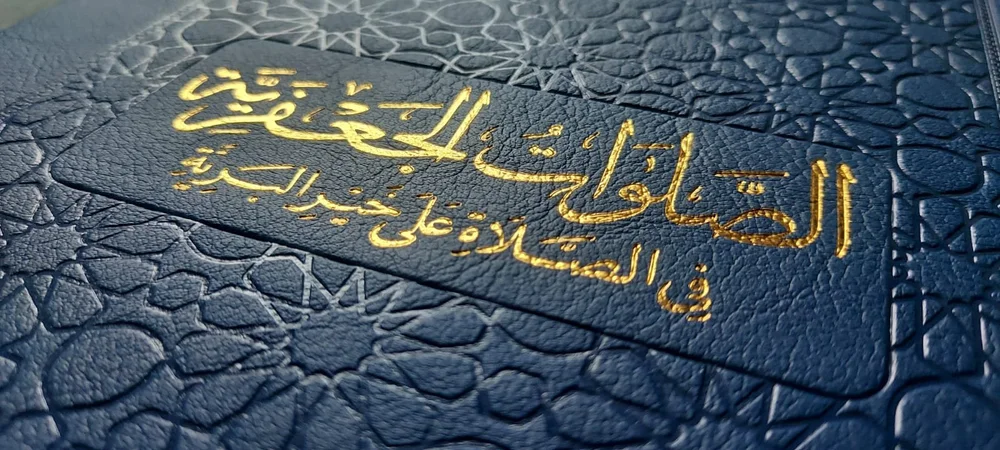 الصَّلَوَاتُ الجَعْفَرِيَّة
فِي الصَّلَاةِ عَلَى خَيْرِ البَرِيَّةِ